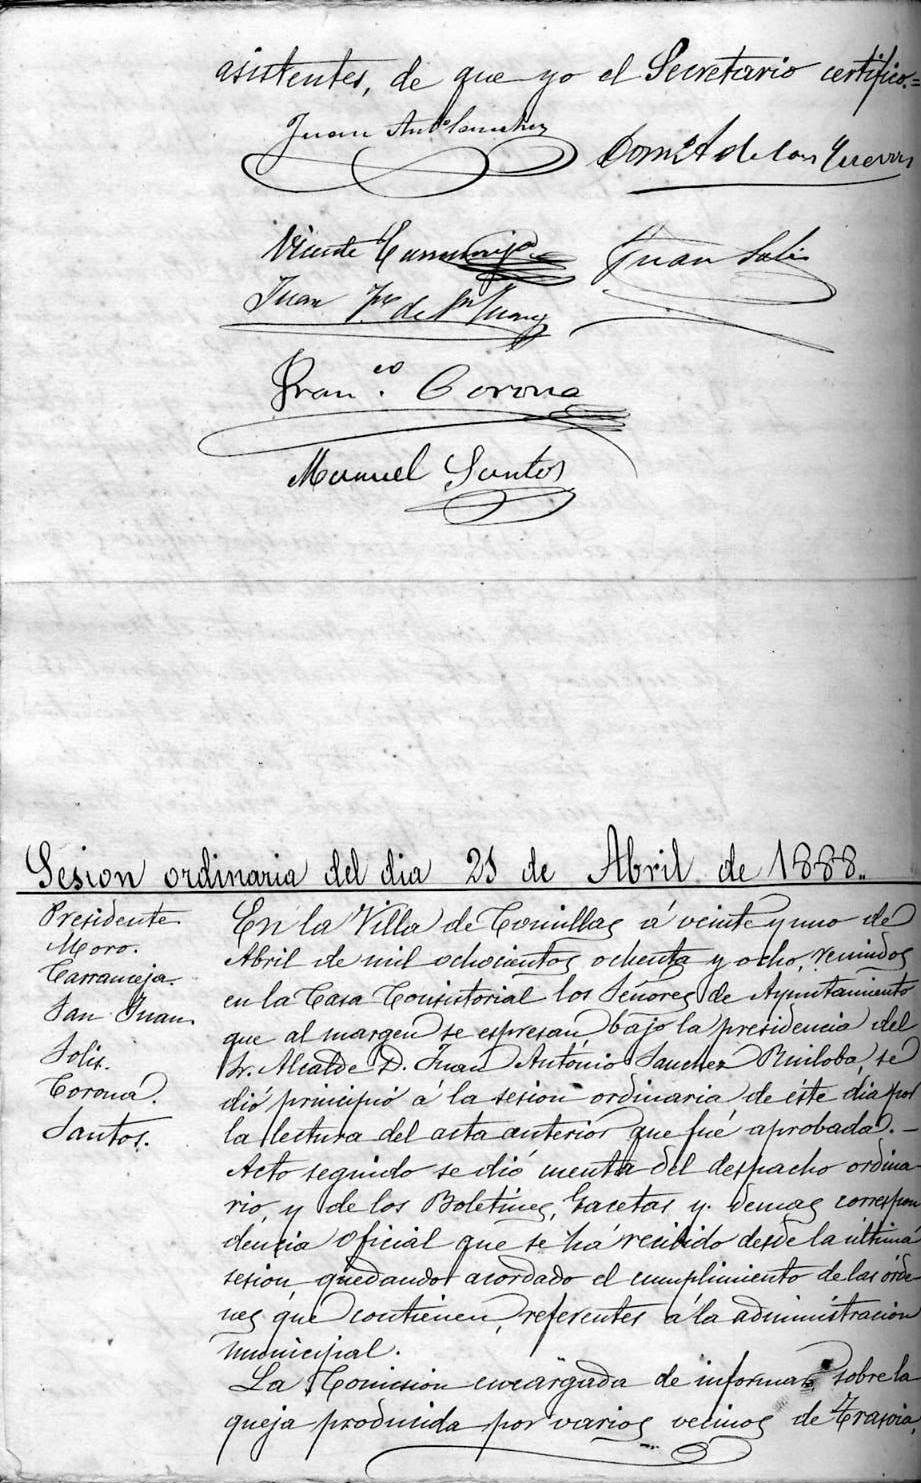 asistentes, de que yo el Secretario certifico.=
Juan Antº Sanchez
Domº A de las Cuevas
Vicente Carranceja
Juan Solis
Juan Jph de Sn Juan
Franco. Corona
Manuel Santos
Sesion ordinaria del dia 21 de Abril de 1888.
Presidente
Moro.
Carranceja.
San Juan.
Solis.
Corona.
Santos.
En la Villa de Comillas á veinte y uno de
Abril de mil ochocientos ochenta y ocho, reunidos
en la Casa Consistorial los Señores de Ayuntamiento
que al margen se espresan bajo la presidencia del
Sr. Alcalde D. Juan António Sanchez Ruiloba, se
dió principió á la sesion ordinaria de éste dia por
la lectura del acta anterior que fué aprobada. —
Acto seguido se dió cuenta del despacho ordina-
rio, y de los Boletines, Gacetas y demas correspon
déncia oficial que se há recibido desde la última
sesion, quedando acordado el cumplimiento de las órde
nes que contienen, referentes á la administracion
municipal.
La Comision encargada de informar sobre la
queja producida por varios vecinos de Trasvia,